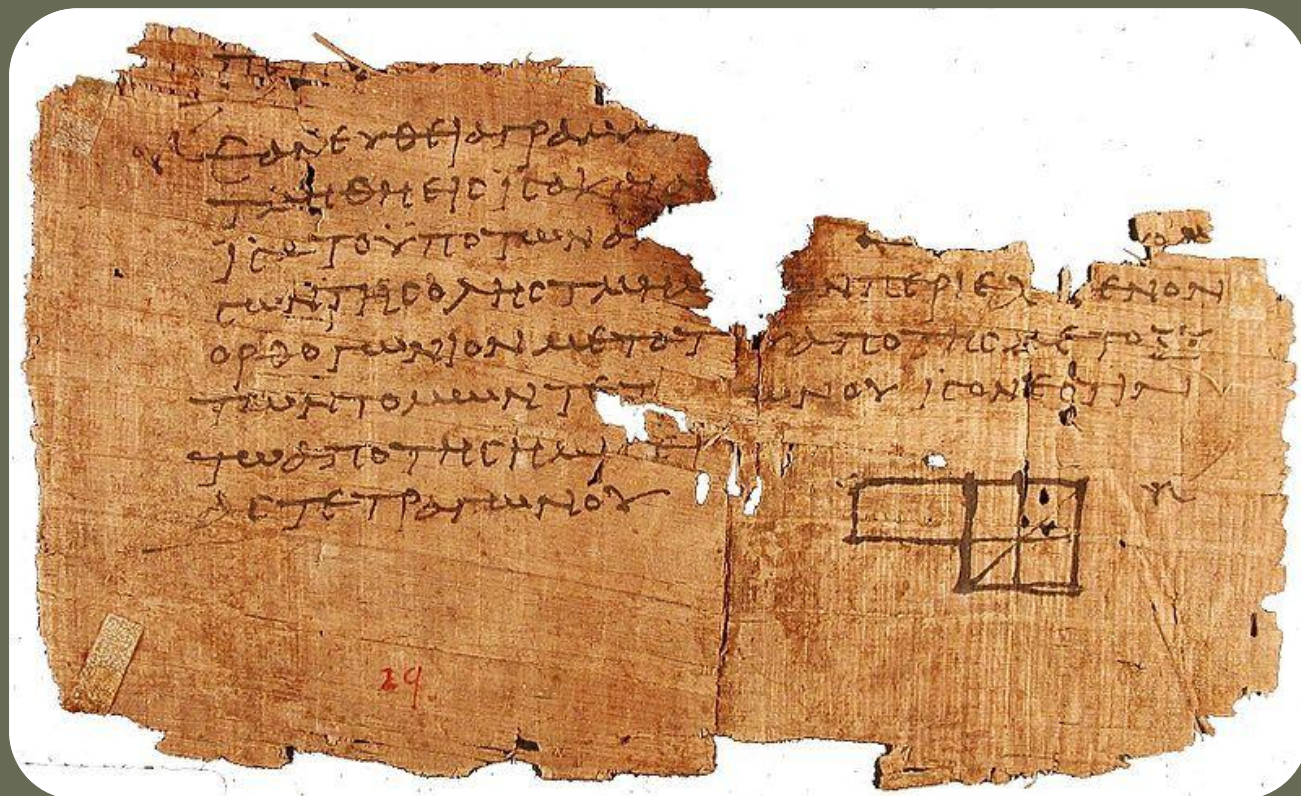 ΕΑΝ ΕΥΘΕΙΑ ΓΡΑΜ
ΤΜΗΘΗ ΕΙC ΙCΑ Κ
ΙCΑ ΤΟ ΥΠΟ ΤΩΝ Α
CΩΝ ΤΗC ΟΛΗC ΤΜΗΜ ΩΝ ΠΕΡΙΕΧ ΕΝΟΝ
ΟΡΘΟΓΩΝΙΟΝ ΜΕΤΑ Τ Υ ΑΠΟ ΤΗC ΜΕΤΟΞΥ
ΤΩΝ ΤΟΜΩΝ ΤΕΤ ΩΝΟΥ ΙCΟΝ ΕCΤΙΝ
ΤΩ ΑΠΟ ΤΗC ΗΜΙ ΕΙ
ΑC ΤΕΤΡΑΓΩΝΟΥ
29